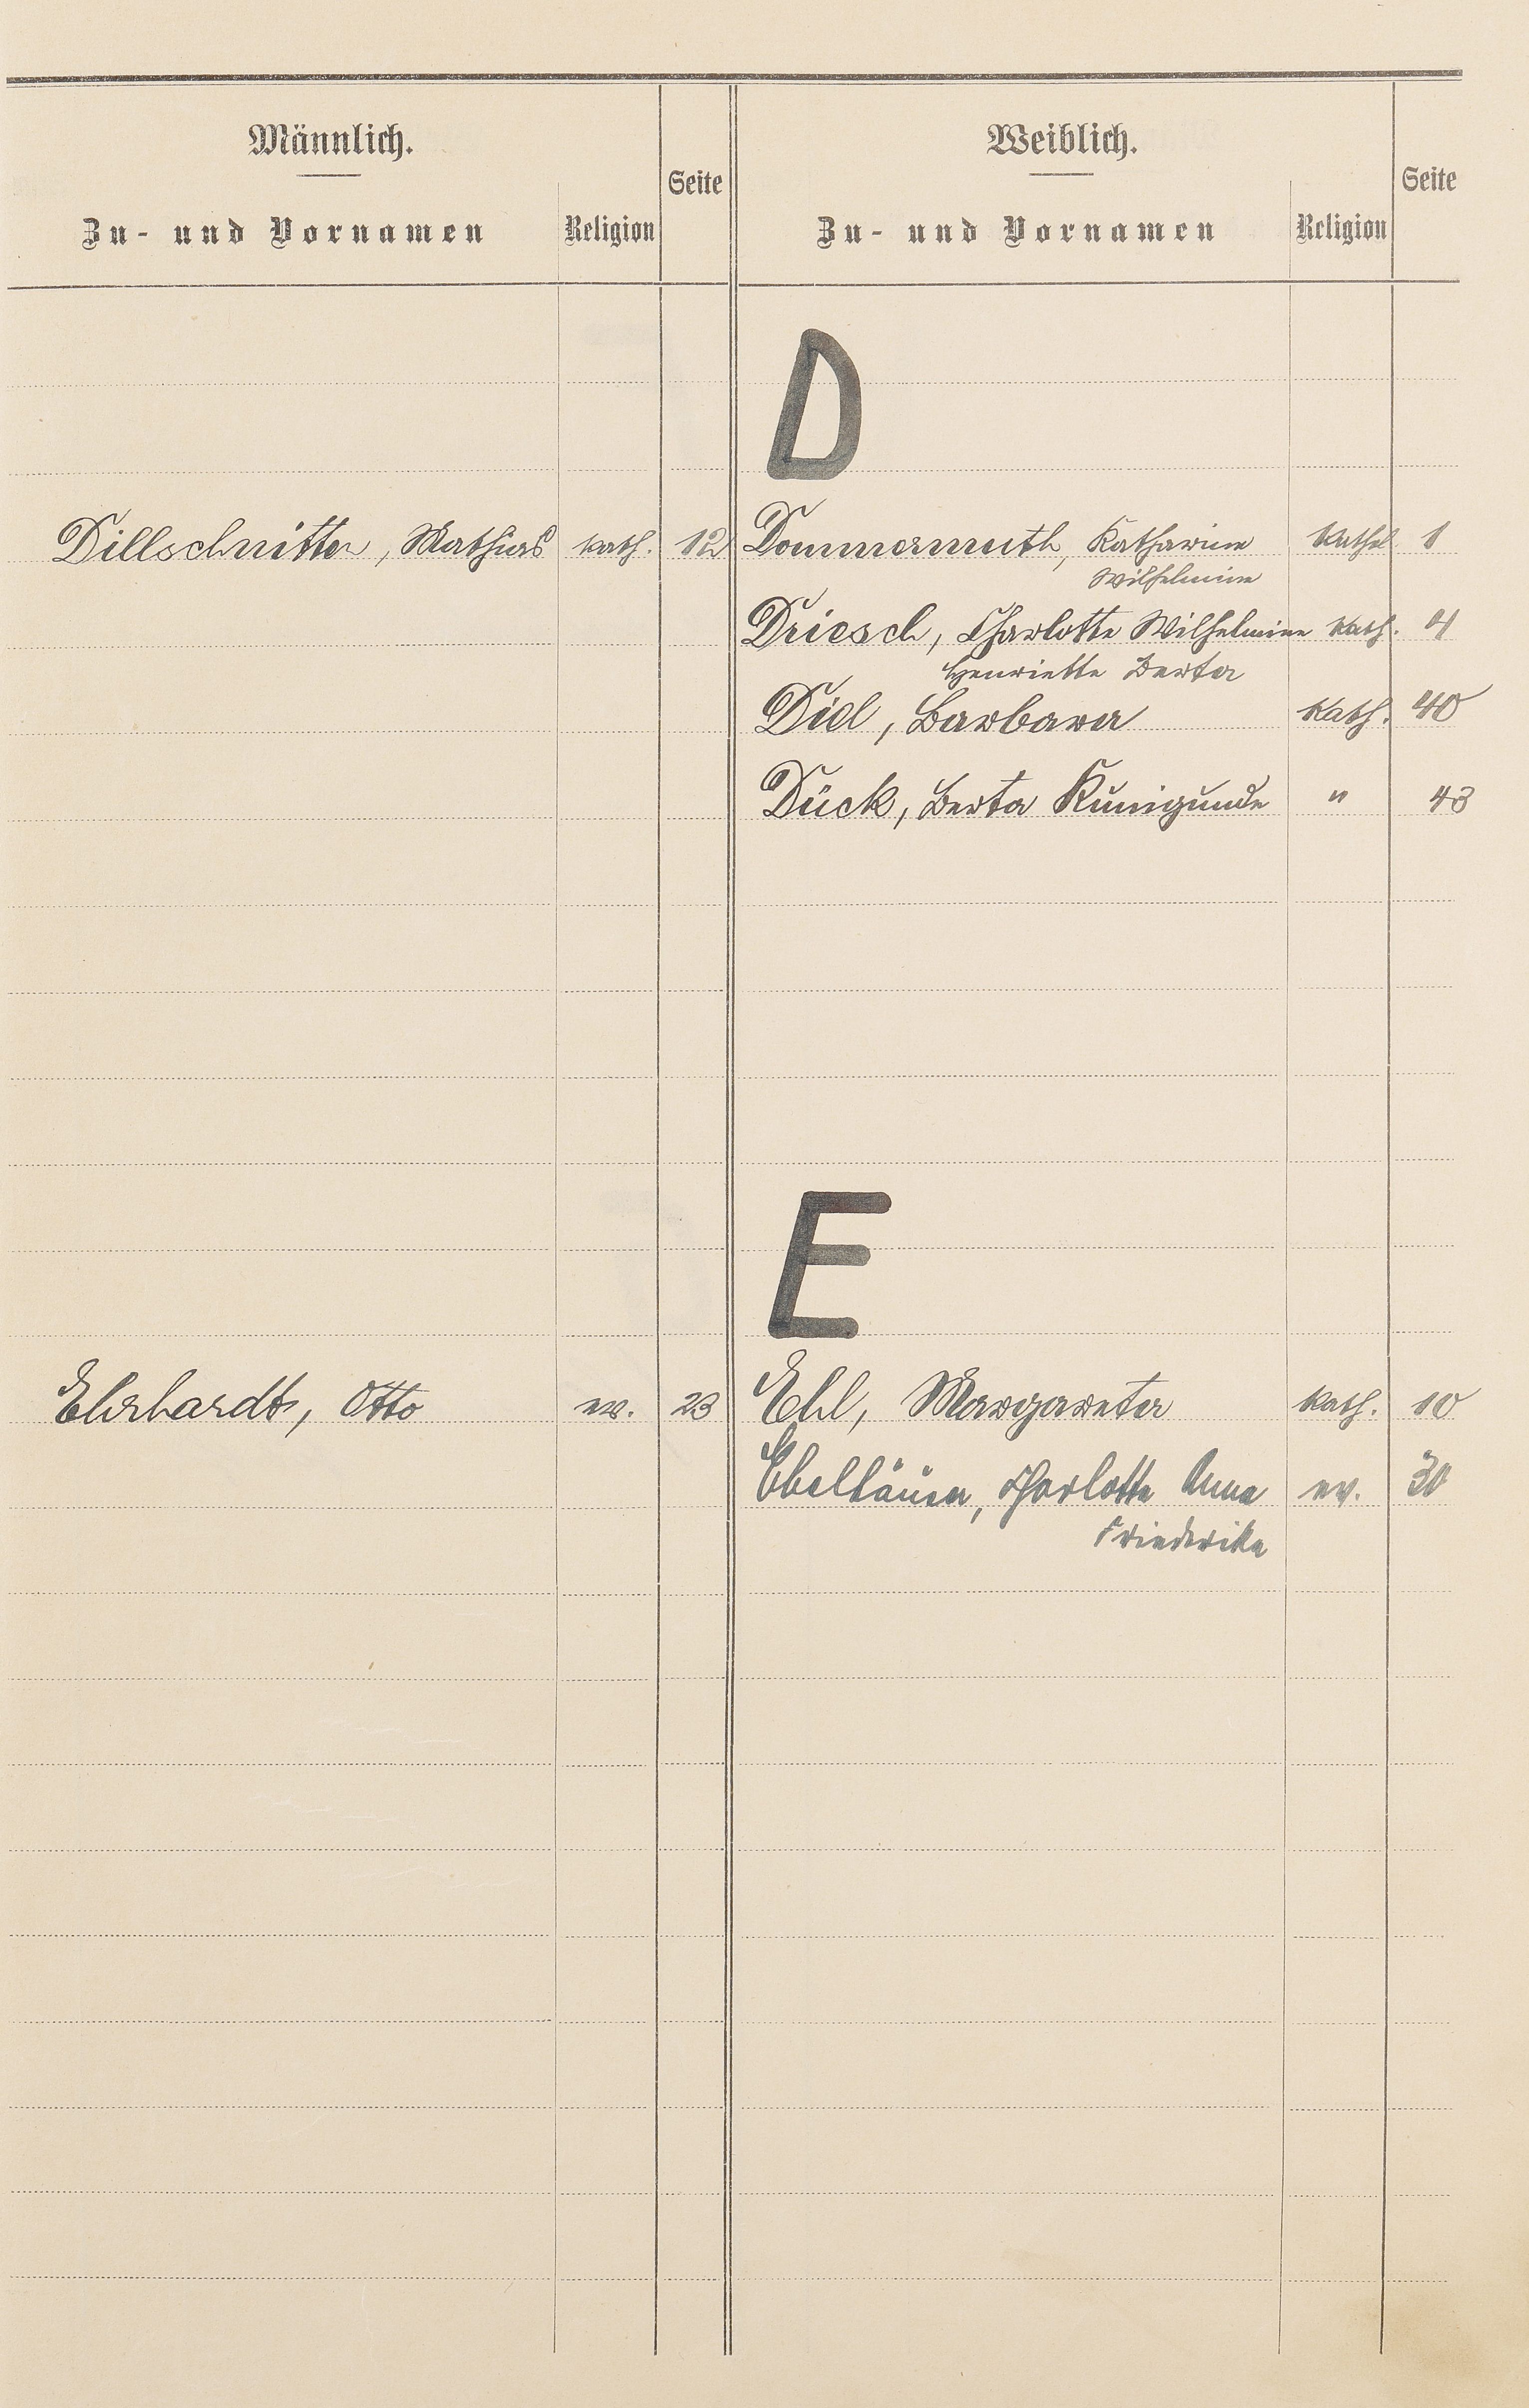 Männlich.
Weiblich.
Zu- und Vornamen Religion Seite
Zu- und Vornamen Religion Seite
D
Dillschnitter, Mathias kath. 12
Dommermuth, Katharine kathol 1
Wilhelmine
Driesch, Charlotte Wilhelmine kath. 4
Henriette Berta
Diel, Barbara kath. 40
Dück, Berta Kunigunde " 43
E
Ehrhardt, Otto ev. 23
Ehl, Margareta kath. 10
Ebelhäuser, Charlotte Anna ev. 30
Friederike